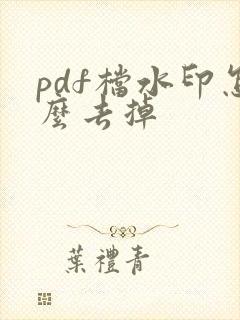 pdf檔水印怎
麼去掉
葉禮青